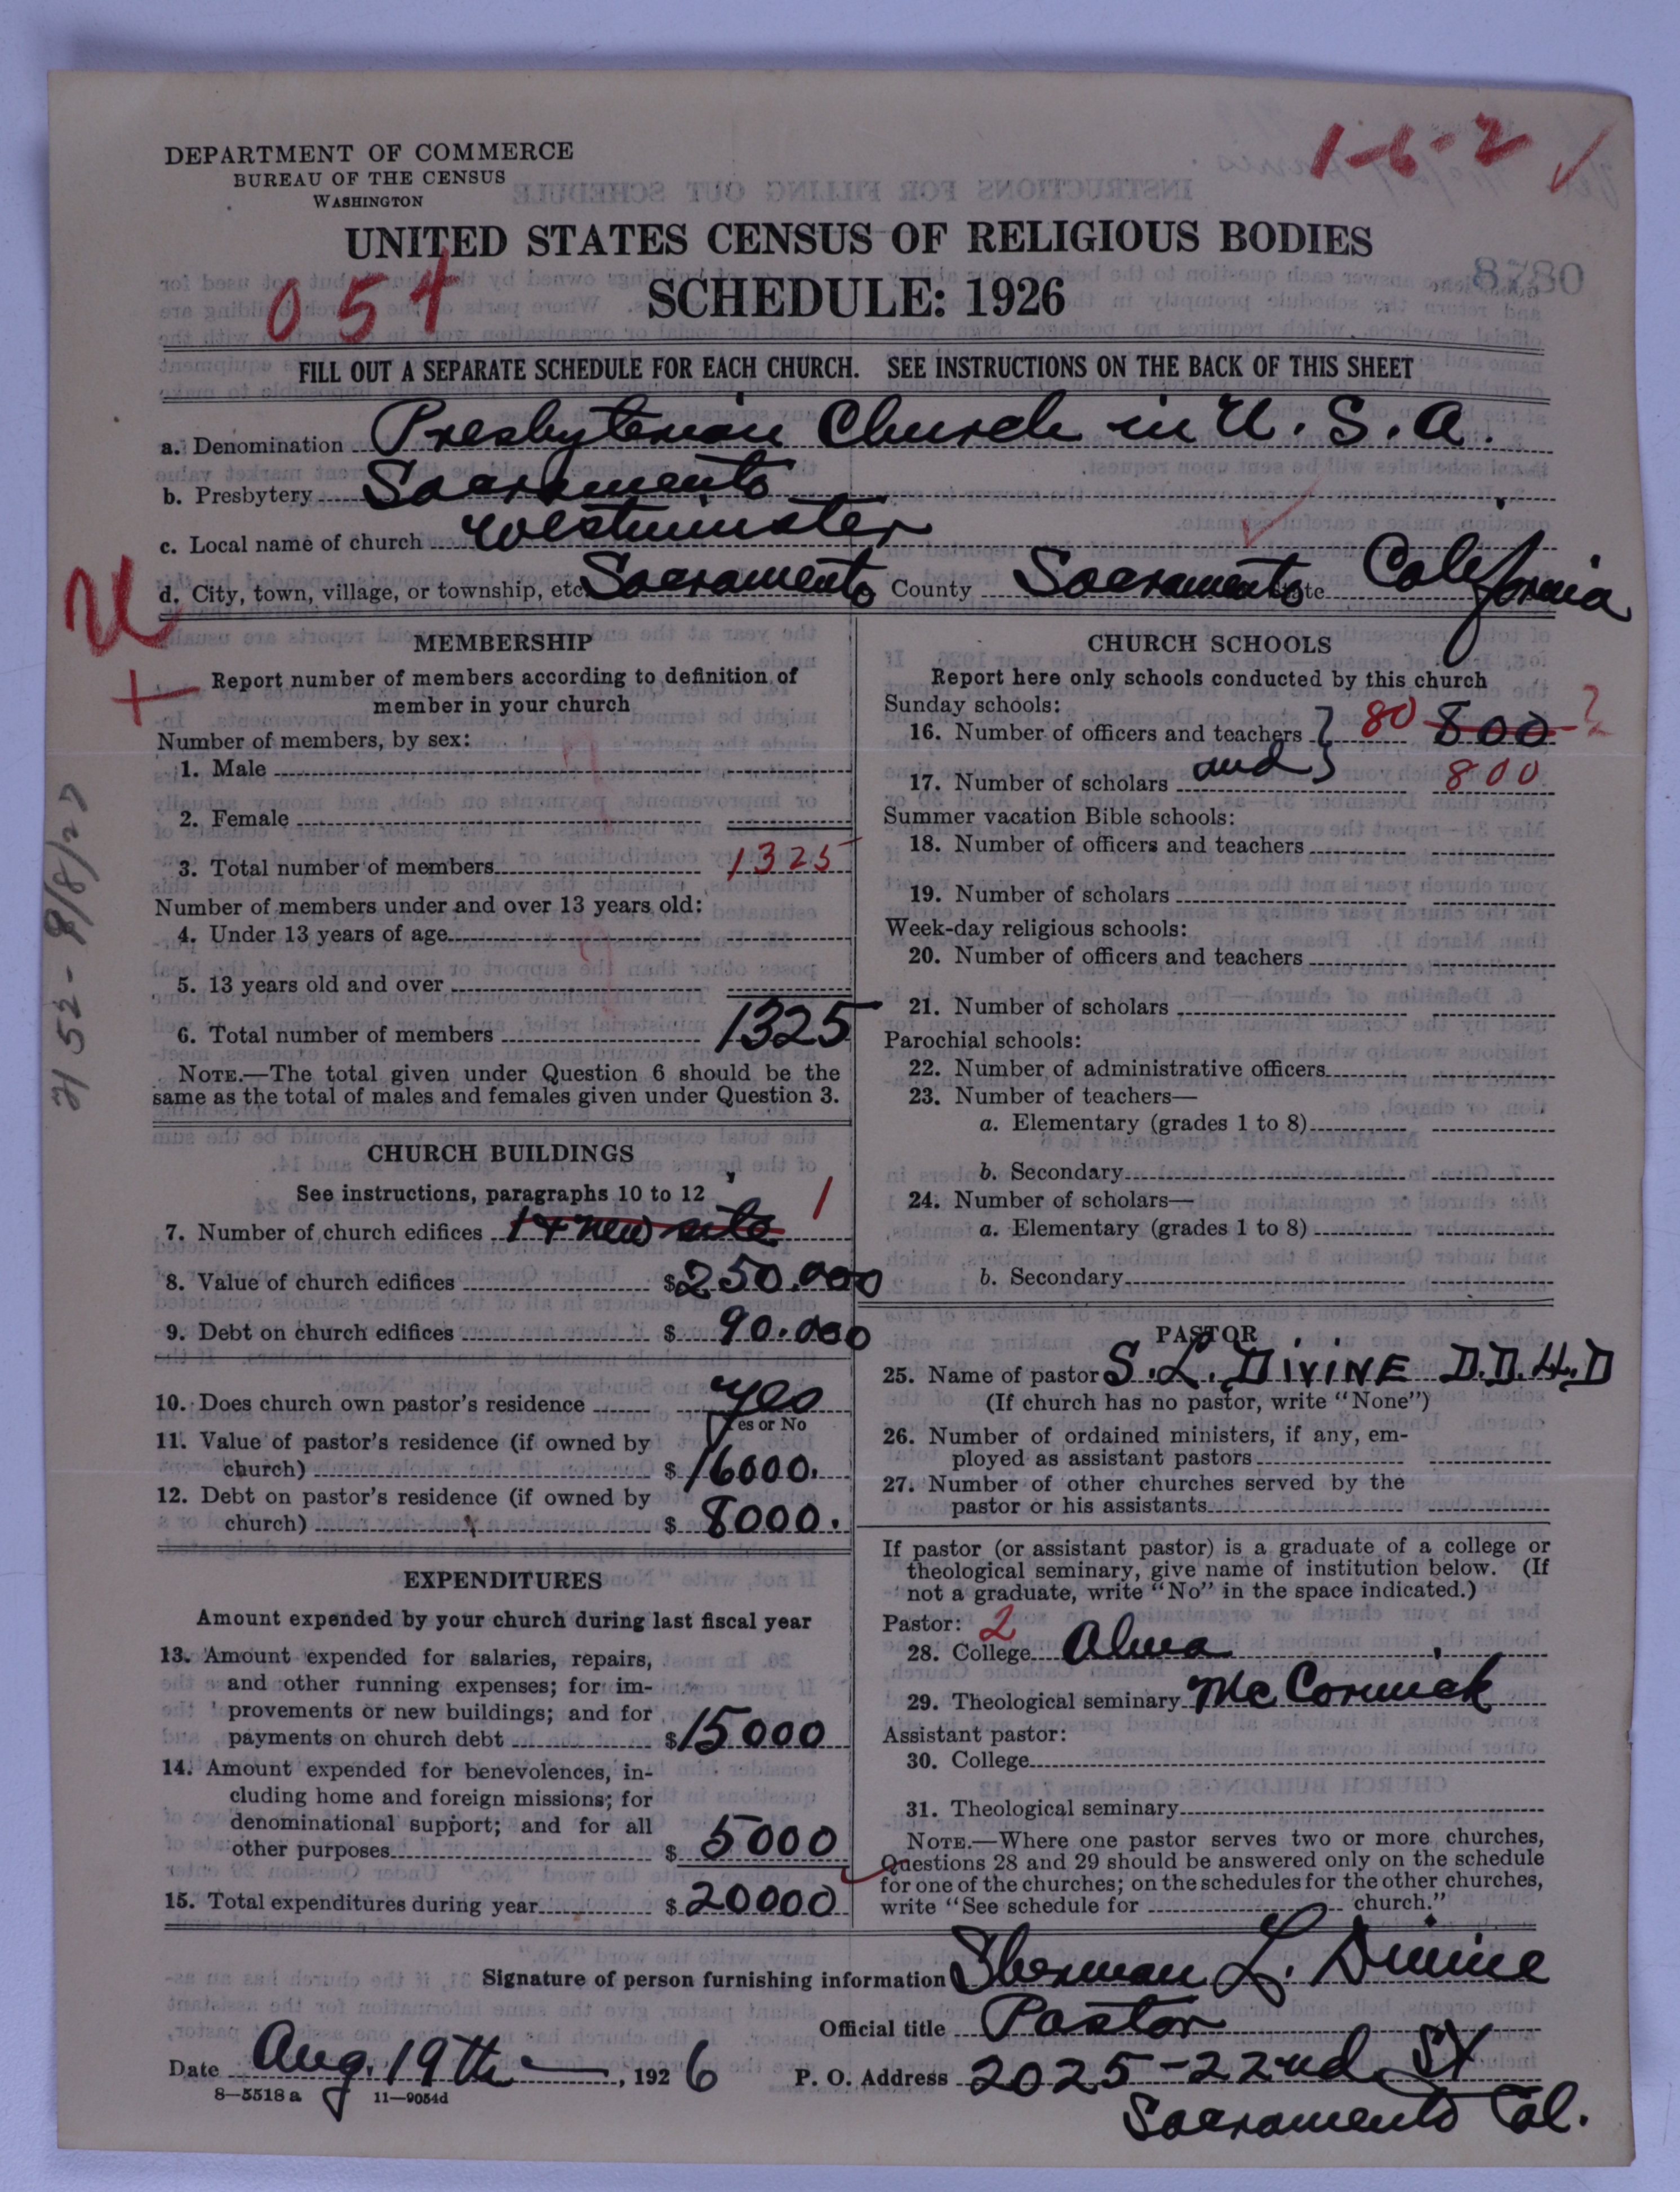 1-6-2 ✓
DEPARTMENT OF COMMERCE
BUREAU OF THE CENSUS
WASHINGTON
UNITED STATES CENSUS OF RELIGIOUS BODIES
054
SCHEDULE: 1926
8780
FILL OUT A SEPARATE SCHEDULE FOR EACH CHURCH. SEE INSTRUCTIONS ON THE BACK OF THIS SHEET
a. Denomination Presbyterian Church in U. S. A.
b. Presbytery Sacramento
c. Local name of church Westminster
d. City, town, village, or township, etc Sacramento County Sacramento State California
U
+
MEMBERSHIP
Report number of members according to definition of
member in your church
Number of members, by sex:
1. Male
2. Female
3. Total number of members 1325
Number of members under and over 13 years old:
4. Under 13 years of age
5. 13 years old and over
6. Total number of members 1325
NOTE.—The total given under Question 6 should be the
same as the total of males and females given under Question 3.
CHURCH BUILDINGS
See instructions, paragraphs 10 to 12
7. Number of church edifices 1 + new site 1
8. Value of church edifices $250.000
9. Debt on church edifices $ 90.000
10. Does church own pastor's residence yes
Yes or No
11. Value of pastor's residence (if owned by
church) $ 16000.
12. Debt on pastor's residence (if owned by
church) $ 8000.
EXPENDITURES
Amount expended by your church during last fiscal year
13. Amount expended for salaries, repairs,
and other running expenses; for im-
provements or new buildings; and for
payments on church debt $15000
14. Amount expended for benevolences, in-
cluding home and foreign missions; for
denominational support; and for all
other purposes $ 5000
15. Total expenditures during year $20000
CHURCH SCHOOLS
Report here only schools conducted by this church
Sunday schools:
16. Number of officers and teachers } 80 800 ?
and
17. Number of scholars 800
Summer vacation Bible schools:
18. Number of officers and teachers
19. Number of scholars
Week-day religious schools:
20. Number of officers and teachers
21. Number of scholars
Parochial schools:
22. Number of administrative officers
23. Number of teachers—
a. Elementary (grades 1 to 8)
b. Secondary
24. Number of scholars—
a. Elementary (grades 1 to 8)
b. Secondary
PASTOR
25. Name of pastor S. L. DIVINE D.D.LL.D
(If church has no pastor, write "None")
26. Number of ordained ministers, if any, em-
ployed as assistant pastors
27. Number of other churches served by the
pastor or his assistants
If pastor (or assistant pastor) is a graduate of a college or
theological seminary, give name of institution below. (If
not a graduate, write "No" in the space indicated.)
Pastor: 2
28. College Alma
29. Theological seminary McCormick
Assistant pastor:
30. College
31. Theological seminary
NOTE.—Where one pastor serves two or more churches,
Questions 28 and 29 should be answered only on the schedule
for one of the churches; on the schedules for the other churches,
write "See schedule for church."
Signature of person furnishing information Sherman L. Divine
Official title Pastor
Date Aug. 19th, 1926 P. O. Address 2025-22nd St
8—5518 a 11—9054d
Sacramento Cal.